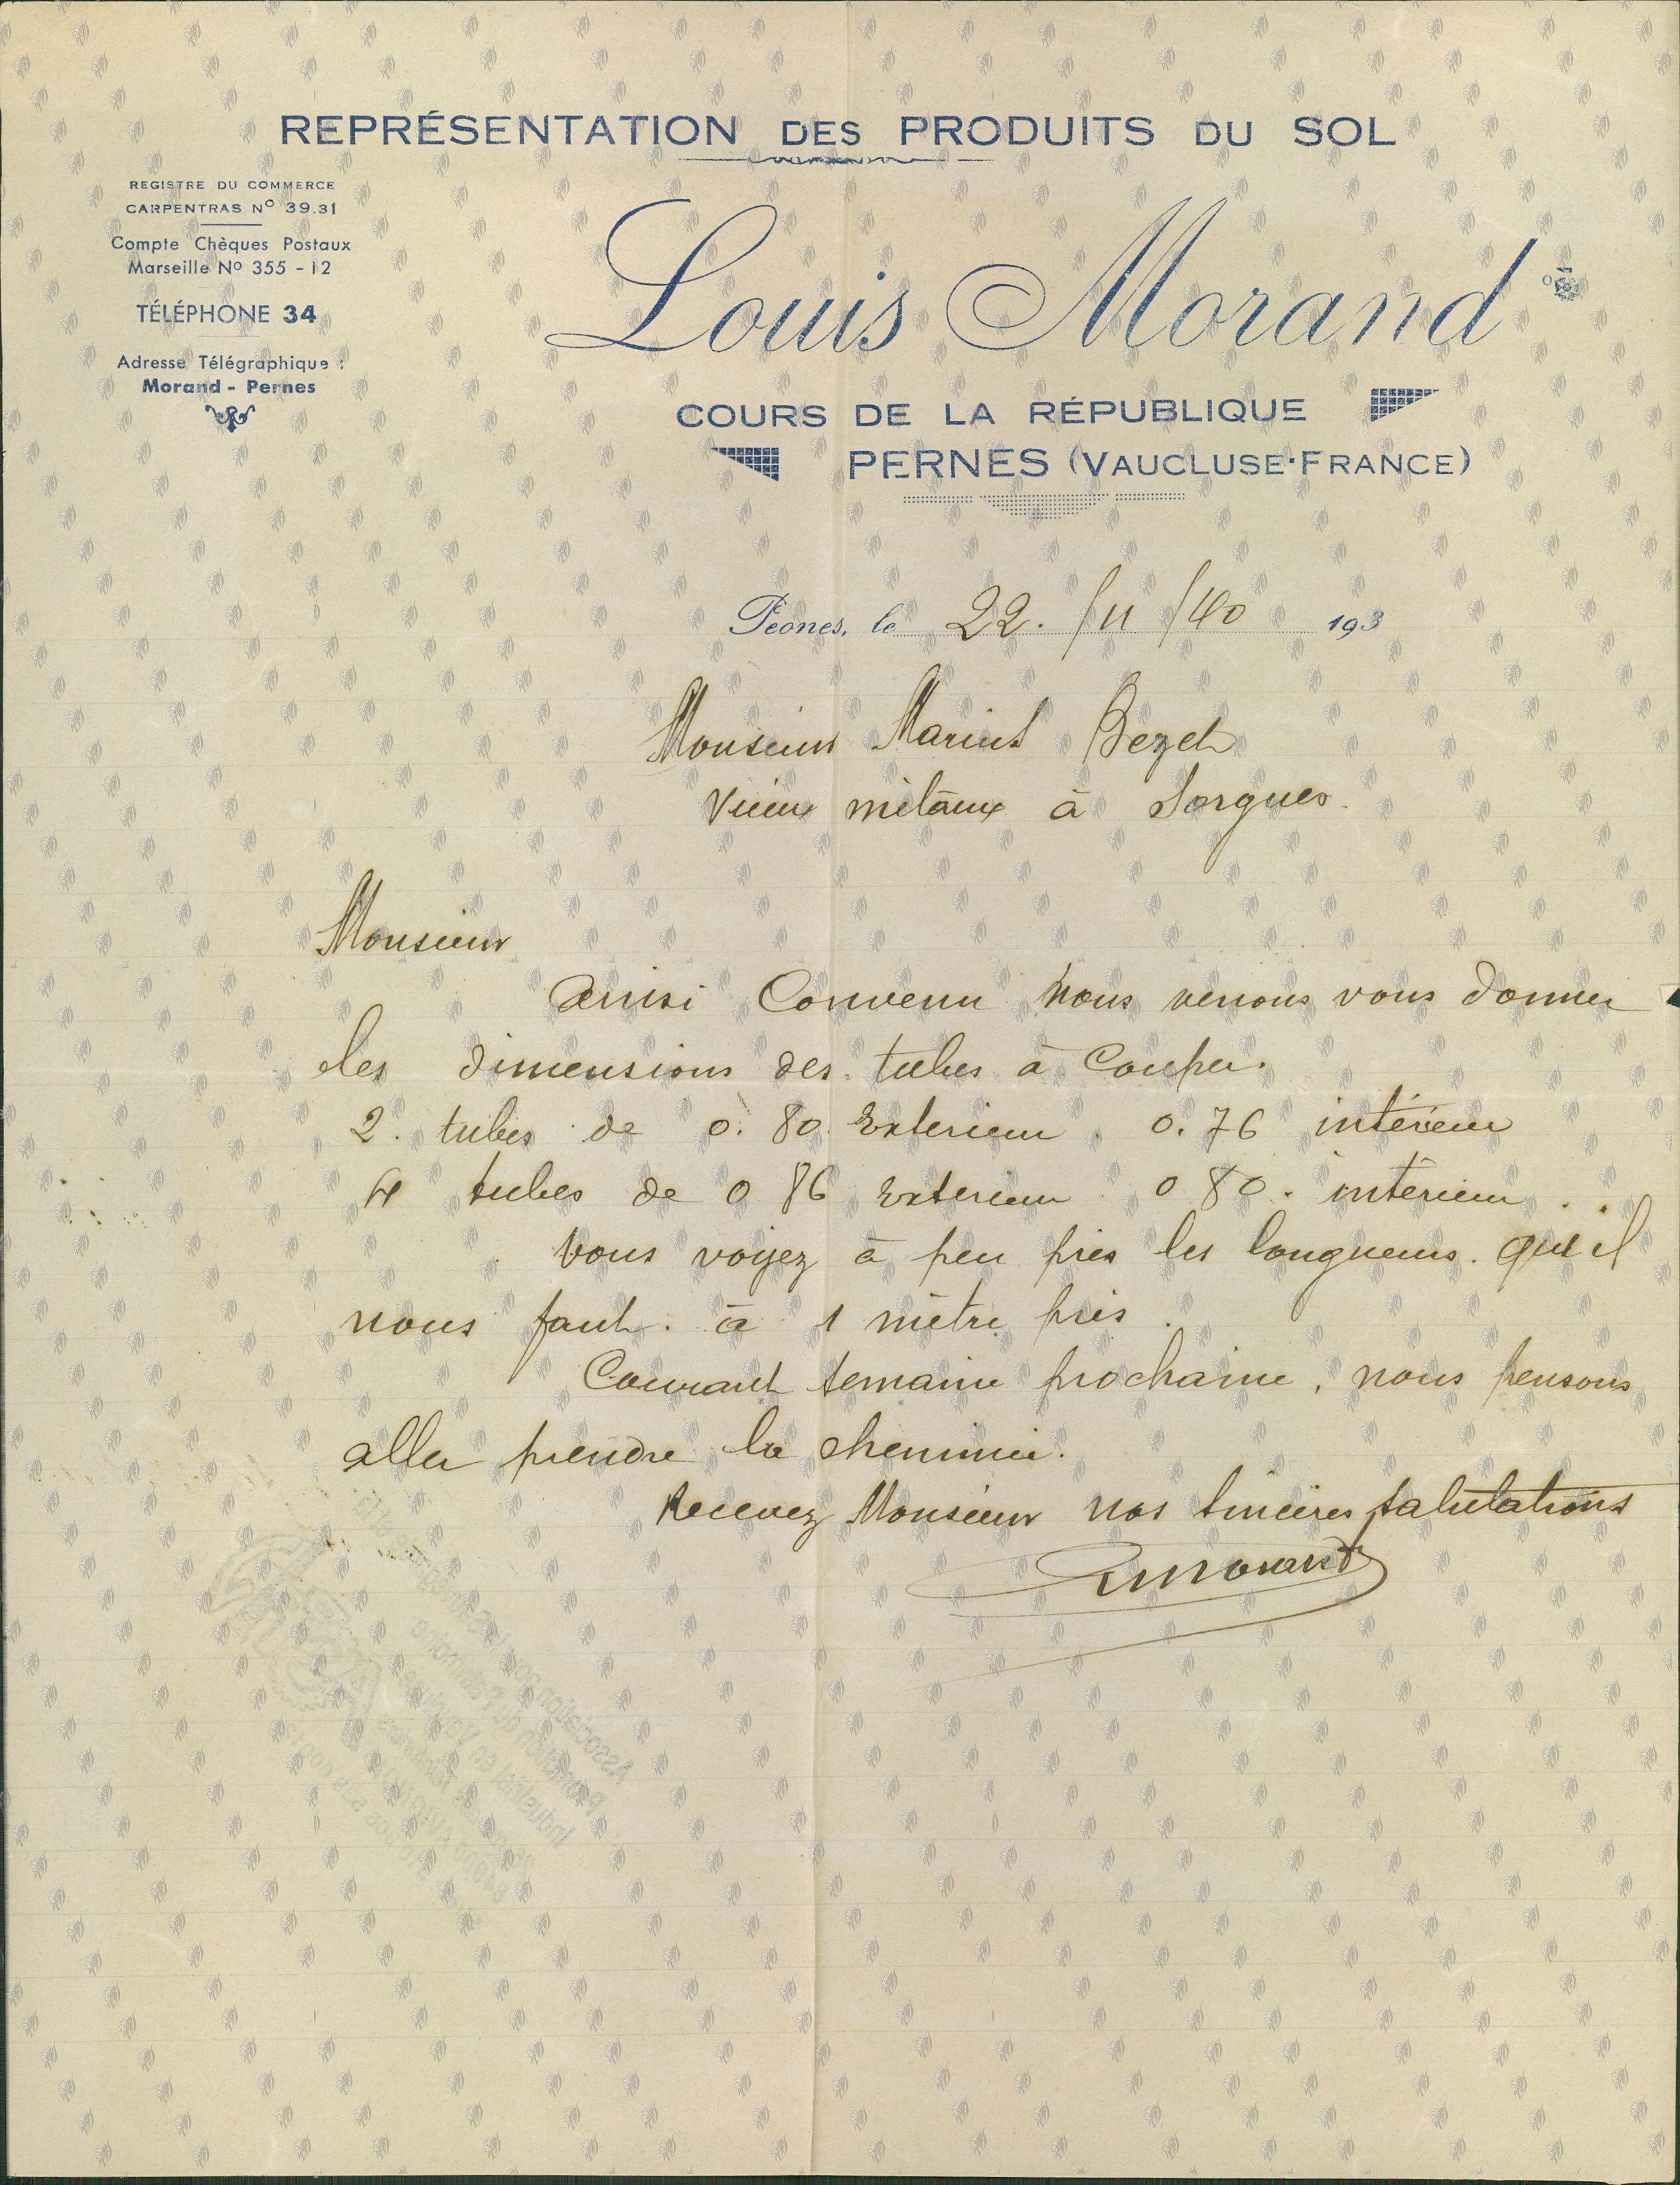 REPRÉSENTATION DES PRODUITS DU SOL
REGISTRE DU COMMERCE
CARPENTRAS No 39.31
Compte Chèques Postaux
Marseille No 355 - 12
TÉLÉPHONE 34
Adresse Télégraphique :
Morand - Pernes
Louis Morand
COURS DE LA RÉPUBLIQUE
PERNES (VAUCLUSE·FRANCE)
Pernes, le 22. /11 /40 193
Monsieur Marius Bezet
Vieux métaux à Sorgues.
Monsieur
Ainsi Convenu nous venons vous donner
les dimensions des tubes à Couper.
2. tubes de 0. 80. Exterieur. 0. 76 intérieur
4 tubes de 0 86 Exterieur 0 80. intérieur . .
Vous voyez à peu près les longueurs. qu'il
nous faut. à 1 mètre près.
Courant semaine prochaine, nous pensons
aller prendre la cheminée.
Recevez Monsieur nos sincères salutations
Morand
Association pour la
Promotion du Patrimoine
Industriel en Vaucluse
84000 AVIGNON